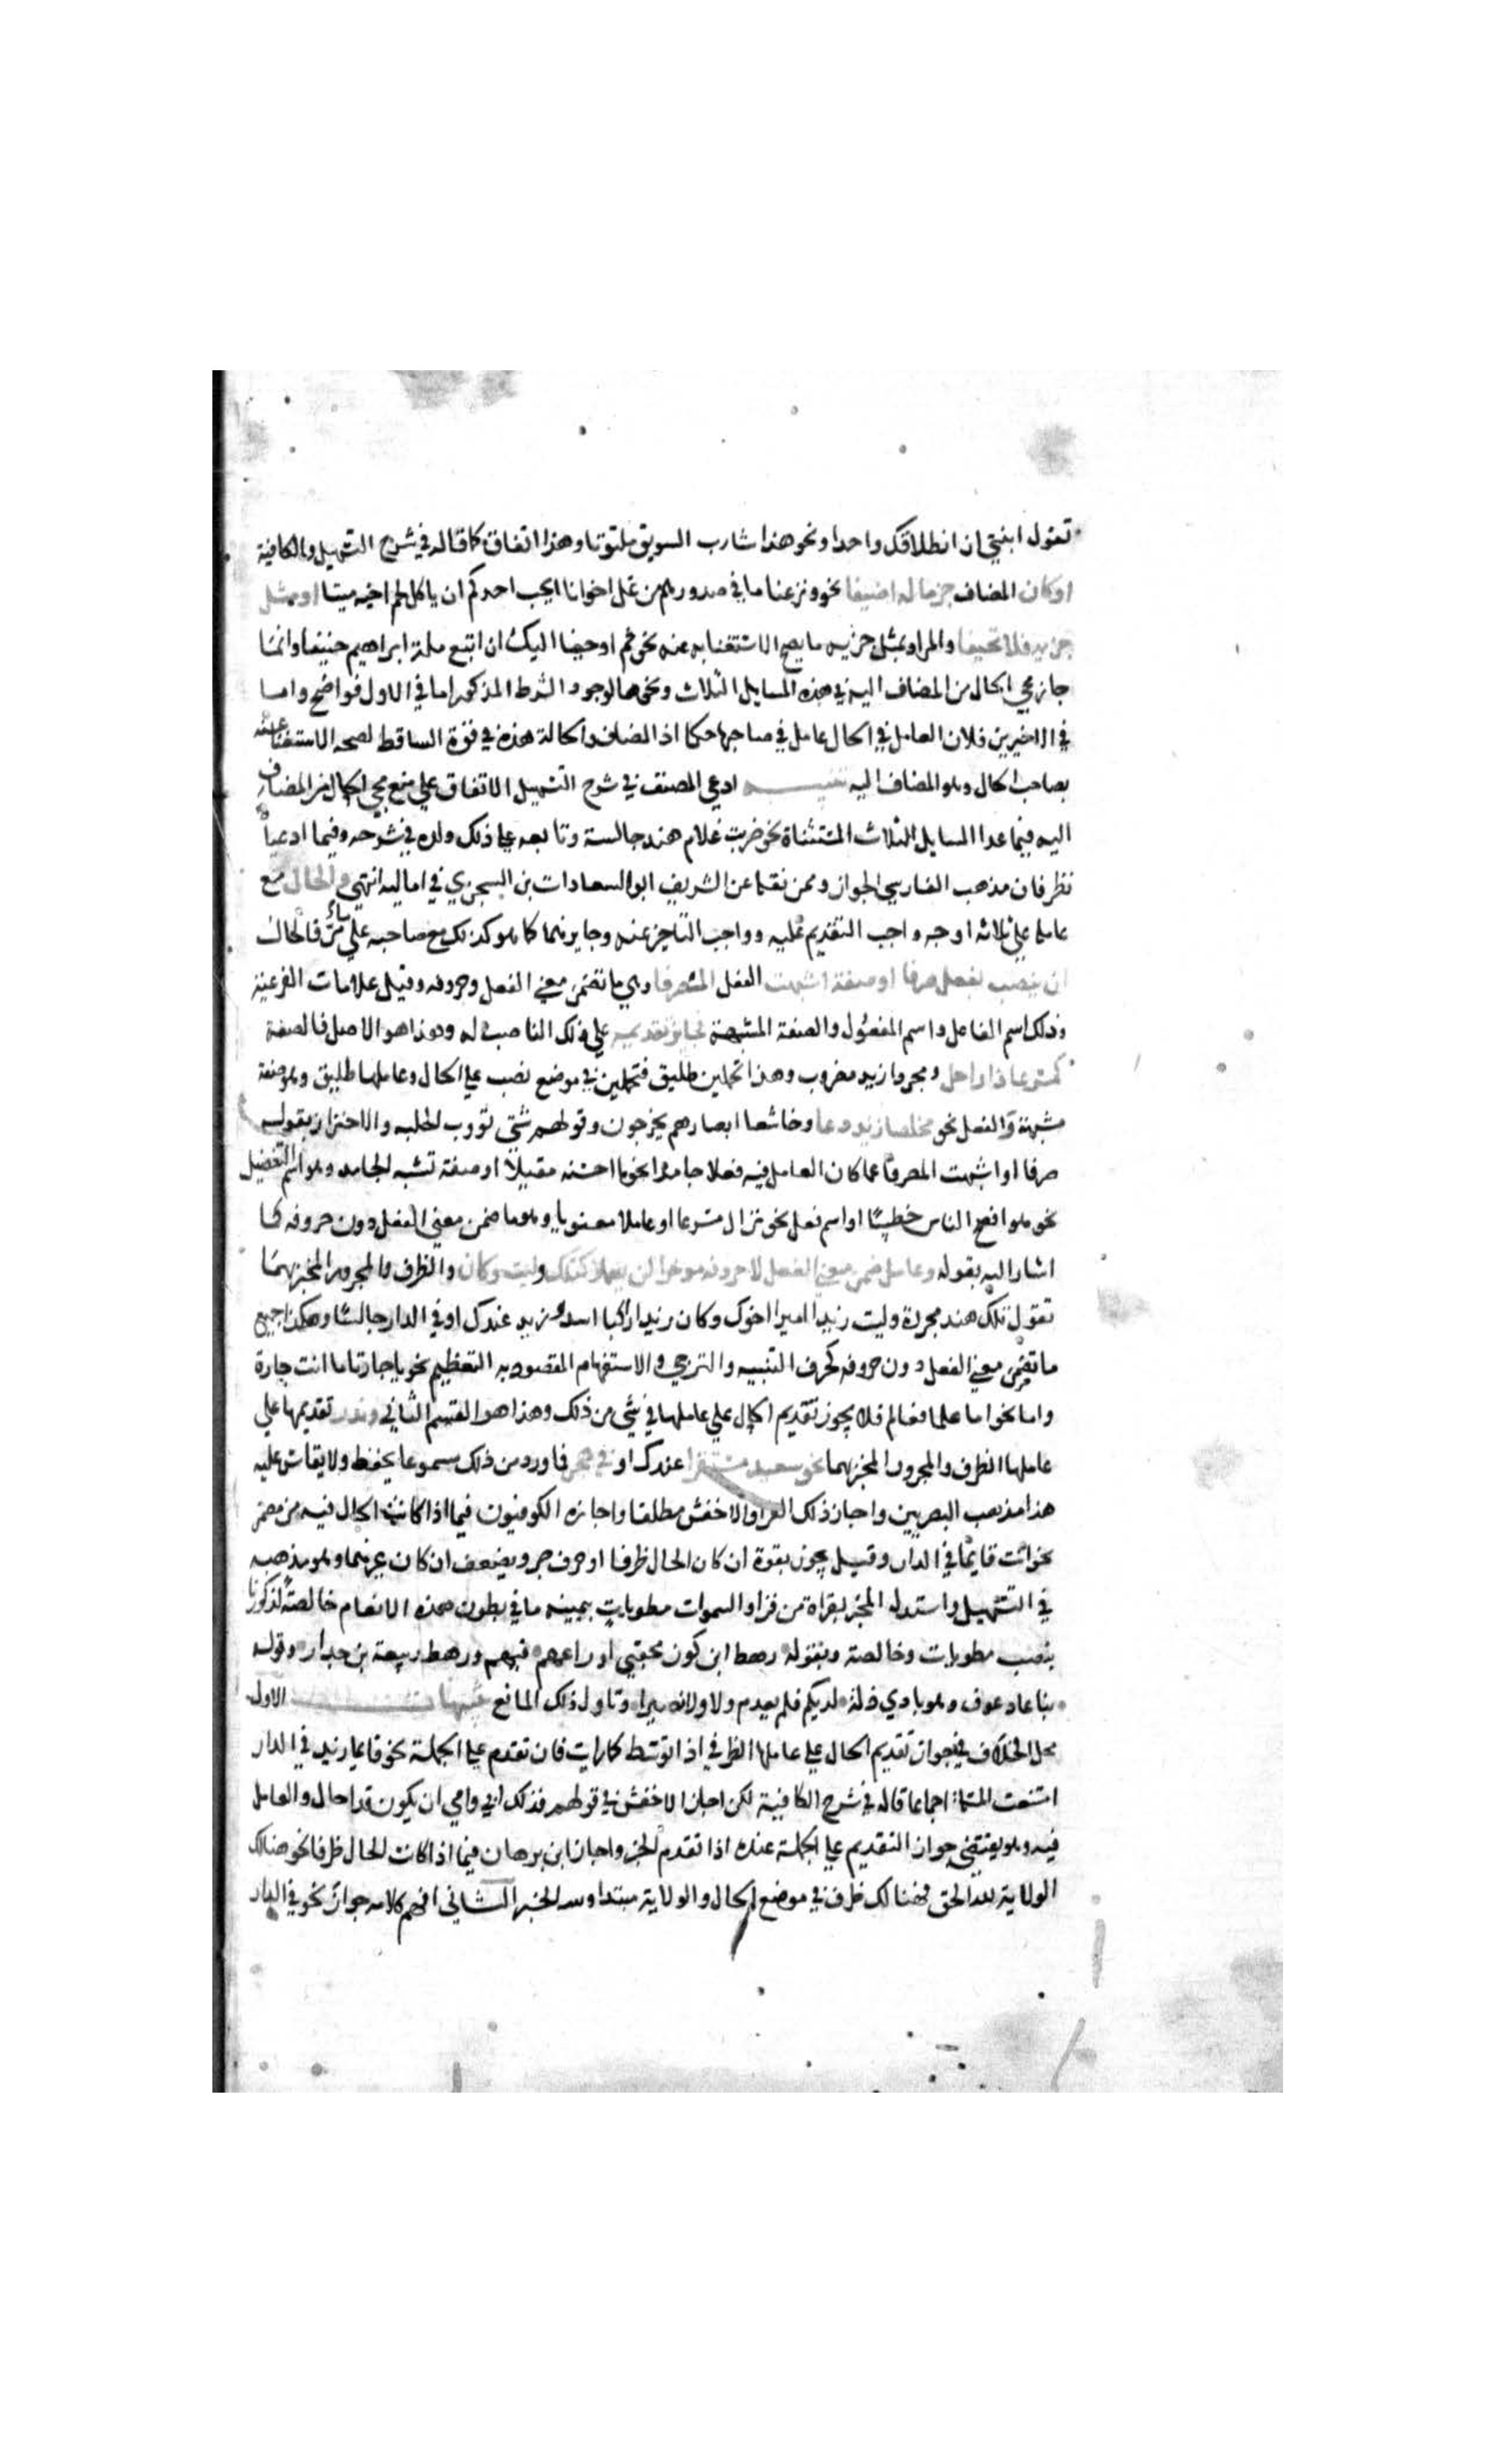 تقول ابنتي ان انطلاقك واحدا ونحو هذا شارب السويق ملتوتا وهذا اتفاق كما قاله في شرح التسهيل والكافية
او كان المضاف جزء ما له اضيفا نحو ونزعنا ما في صدورهم من غل اخوانا ايحب احدكم ان ياكل لحم اخيه ميتا او مثل
جزيه فلا تحيفا والمراد بمثل جزيه ما يصح الاستغنا به عنه نحو ثم اوحينا اليك ان اتبع ملة ابراهيم حنيفا وانما
جاز مجي الحال من المضاف اليه في هذه المسايل الثلاث ونحوها لوجود الشرط المذكور اما في الاول فواضح واما
في الاخيرين فلان العامل في الحال عامل في صاحبها حكما اذ المضاف والحالة هذه في قوة الساقط لصحة الاستغنا عنه
بصاحب الحال وهو المضاف اليه تنبيه ادعي المصنف في شرح التسهيل الاتفاق علي منع مجي الحال من المضاف
اليه فيما عدا المسايل الثلاث المستثناة نحو ضربت غلام هند جالسة وتابعه علي ذلك ولده في شرحه وفيما ادعياه
نظر فان مذهب الفارسي الجواز وممن نقله عن الشريف ابو السعادات بن الشجري في اماليه انتهي والحال مع
عاملها علي ثلاثة اوجه واجب التقديم عليه وواجب التاخير عنه وجايزهما كما هو كذلك مع صاحبه علي ما مر فالحال
ان ينصب بفعل صرفا او صفة اشبهت الفعل المصرفا وهي ما تضمن معني الفعل وحروفه وقبل علامات الفرعية
وذلك اسم الفاعل واسم المفعول والصفة المشبهة فجايز تقديمه علي ذلك الناصب له وهذا هو الاصل فالصفة
كمسرعا ذا راحل ومجردا زيد مضروب وهذا تحملين طليق فتحملين في موضع نصب علي الحال وعاملها طليق وهو صفة
مشبهة والفعل نحو مخلصا زيد دعا وخاشعا ابصارهم يخرجون وقولهم شتي تؤوب الحلبه والاحتراز بقوله
صرفا او اشبهت المصرفا عما كان العامل فيه فعلا جامدا نحو ما احسنه مقبلا او صفة تشبه الجامد وهو اسم التفضيل
نحو هو افصح الناس خطيبًا او اسم فعل نحو نزال مسرعا او عاملا معنويا وهو ما ضمن معني الفعل دون حروفه كما
اشار اليه بقوله وعامل ضمن معني الفعل لا حروفه موخرا لن يعملا كتلك وليت وكان والظرف والمجرور المخبر بهما
تقول تلك هند مجردة وليت زيدا اميرا اخوك وكان زيدا راكبا اسد وزيد عندك او في الدار جالسًا وهكذا جميع
ما تضمن معني الفعل دون حروفه كحرف التنبيه والترجي والاستفهام المقصود به التعظيم نحو يا جارتا ما انت جارة
واما نحو اما علما فعالم فلا يجوز تقديم الحال علي عاملها في شي من ذلك وهذا هو القسم الثاني وندر تقديمها علي
عاملها الظرف والمجرور المخبر بهما نحو سعيد مستقرا عندك او في هجر فما ورد من ذلك مسموعا يحفظ ولا يقاس عليه
هذا مذهب البصريين واجاز ذلك الفرا والاخفش مطلقا واجازه الكوفيون فيما اذا كانت الحال فيه من مضمر
نحو انت قايمًا في الدار وقيل يجوز بقوة ان كان الحال ظرفا او حرف جر ويضعف ان كان غيرهما وهو مذهبه
في التسهيل واستدل المجيز بقراة من قرا والسموات مطويات بيمينه ما في بطون هذه الانعام خالصةً لذكورنا
بنصب مطويات وخالصة وبقوله رهط ابن كوز محقبي ادراعهم فيهم ورهط ربيعة بن حذار وقوله
بنا عاد عوف وهو بادي ذلة لديكم فلم يعدم ولا ولا نصيرا وتاول ذلك المانع تنبيهات الاول
محل الخلاف في جواز تقديم الحال علي عاملها الظرفي اذا توسط كما رايت فان تقدم علي الجملة نحو قايما زيد في الدار
امتنعت المسئلة اجماعا قاله في شرح الكافية لكن اجاز الاخفش في قولهم فدا لك ابي وامي ان يكون فدا حال والعامل
فيه وهو يقتضي جواز التقديم علي الجملة عنده اذا تقدم الخبر واجاز ابن برهان فيما اذا كانت الحال ظرفا نحو هنالك
الولاية لله الحق فهنالك ظرف في موضع الحال والولاية مبتدا ولله الخبر الثاني افهم كلامه جواز نحو في الدار